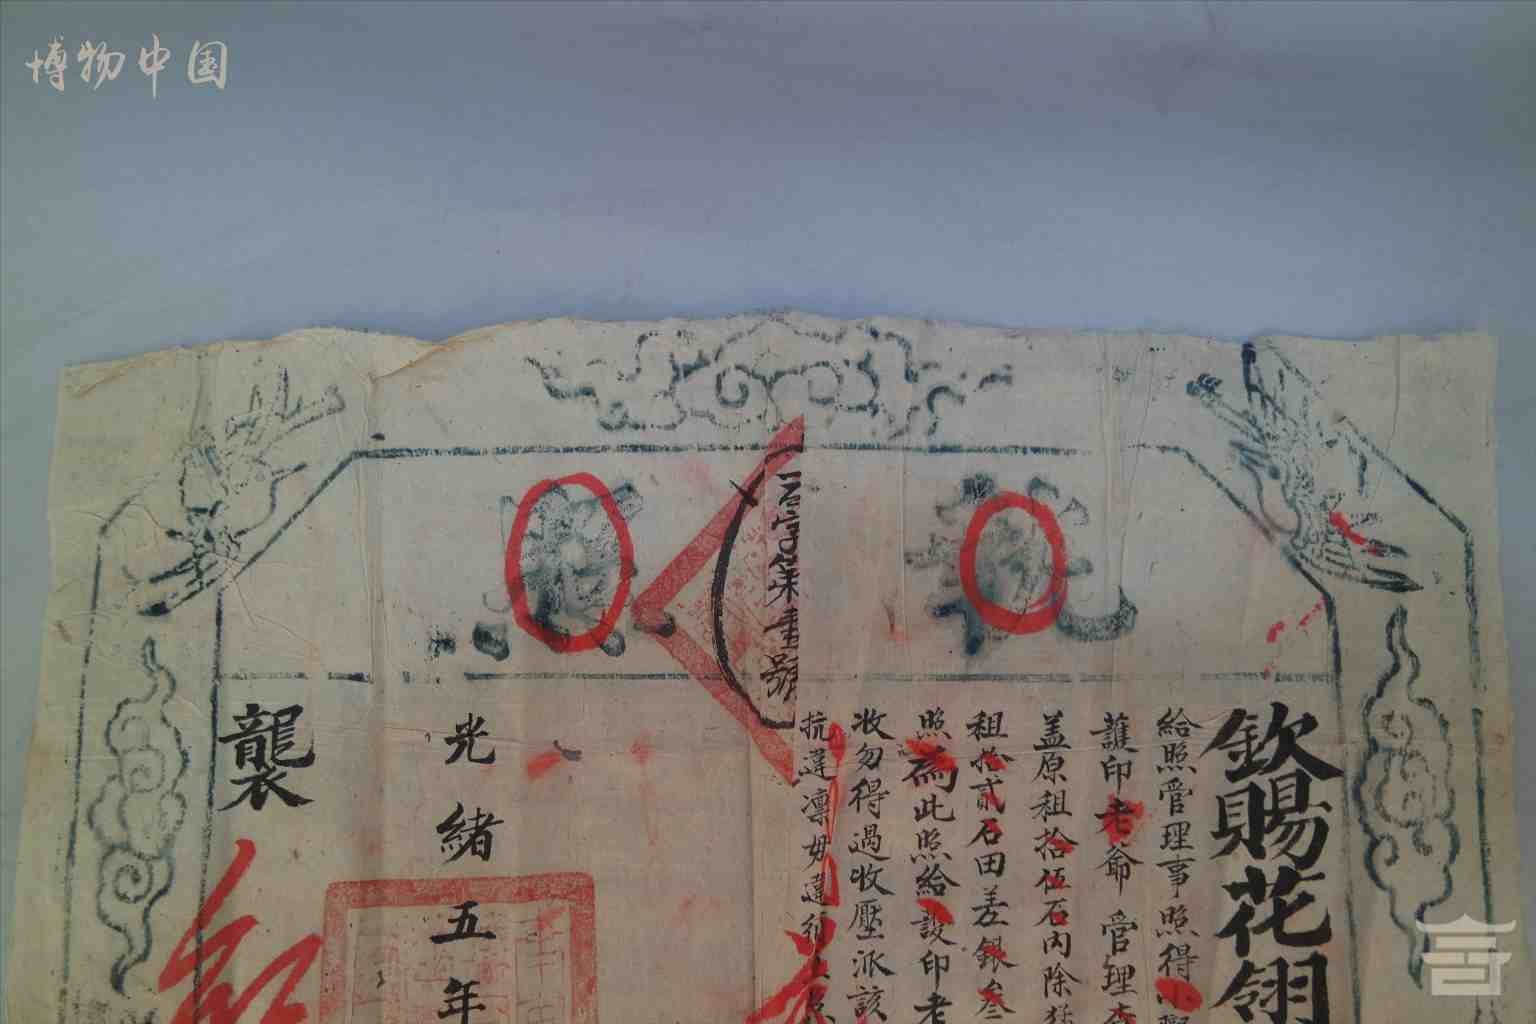 博物中国
執照
欽賜花翎
給照管理事照得
護印老爺管理
盖原租拾伍石内除
租拾貳石田差銀叁
照爲此照給護印老
收勿得過收壓派該
抗違凛毋違須
字第壹號
光緒五年
襲